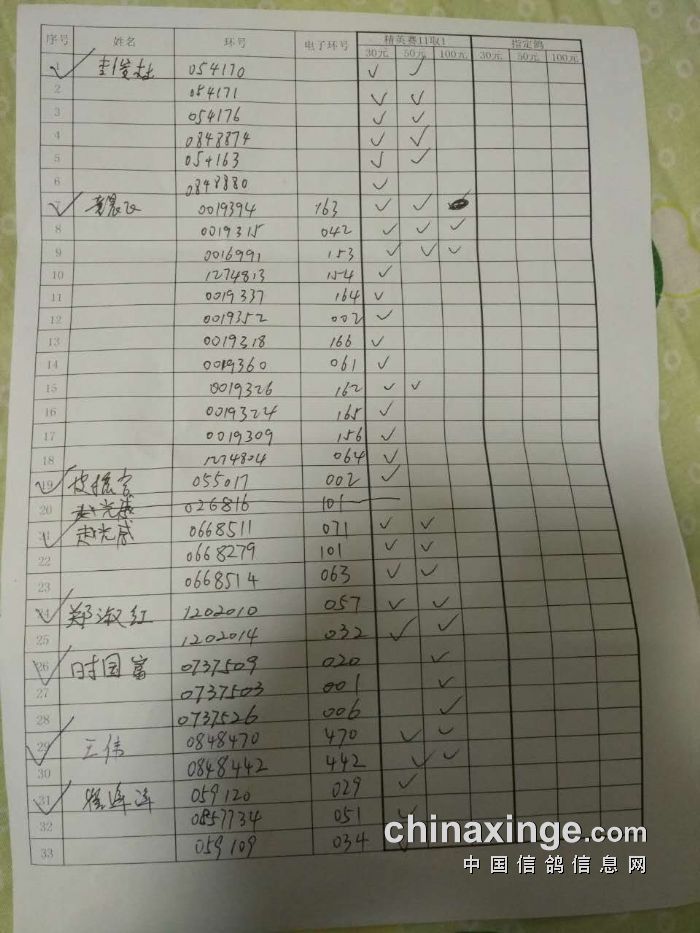 序号 姓名 环号 电子环号 精英赛11取1 指定鸽
30元 50元 100元 30元 50元 100元
1 054170 ✓ ✓
2 054171 ✓ ✓
3 054176 ✓ ✓
4 0848874 ✓ ✓
5 054163 ✓ ✓
6 0848880 ✓
7 0019394 163 ✓ ✓
8 0019315 042 ✓ ✓ ✓
9 0016991 153 ✓ ✓ ✓
10 1274813 154 ✓
11 0019337 164 ✓
12 0019352 002 ✓
13 0019318 166 ✓
14 0019360 061 ✓
15 0019326 162 ✓ ✓
16 0019324 165 ✓
17 0019309 156 ✓
18 1274804 064 ✓
19 055017 002 ✓
20 赵光盛 026816 101
21 赵光盛 0668511 071 ✓ ✓
22 0668279 101 ✓ ✓
23 0668514 063 ✓ ✓
24 郑淑红 1202010 057 ✓ ✓
25 1202014 032 ✓ ✓
26 时国富 0737509 020 ✓
27 0737503 001 ✓
28 0737526 006 ✓
29 王伟 0848470 470 ✓ ✓
30 0848442 442 ✓ ✓
31 059120 029 ✓
32 0857734 051 ✓
33 059109 034 ✓
chinaxinge.com
中国信鸽信息网